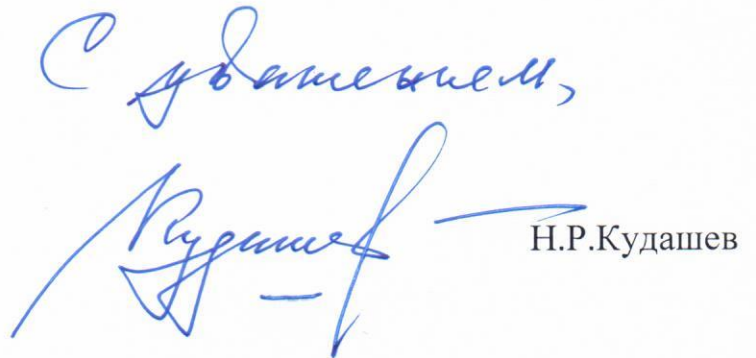 С уважением,
Кудашев Н.Р.Кудашев